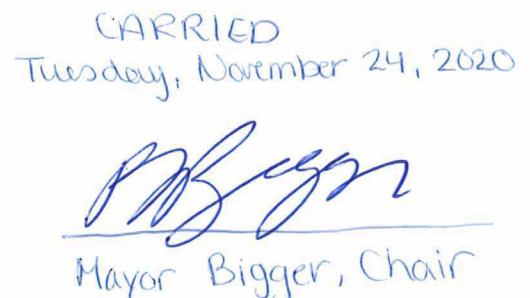 CARRIED
Tuesday, November 24, 2020
Mayor Bigger, Chair